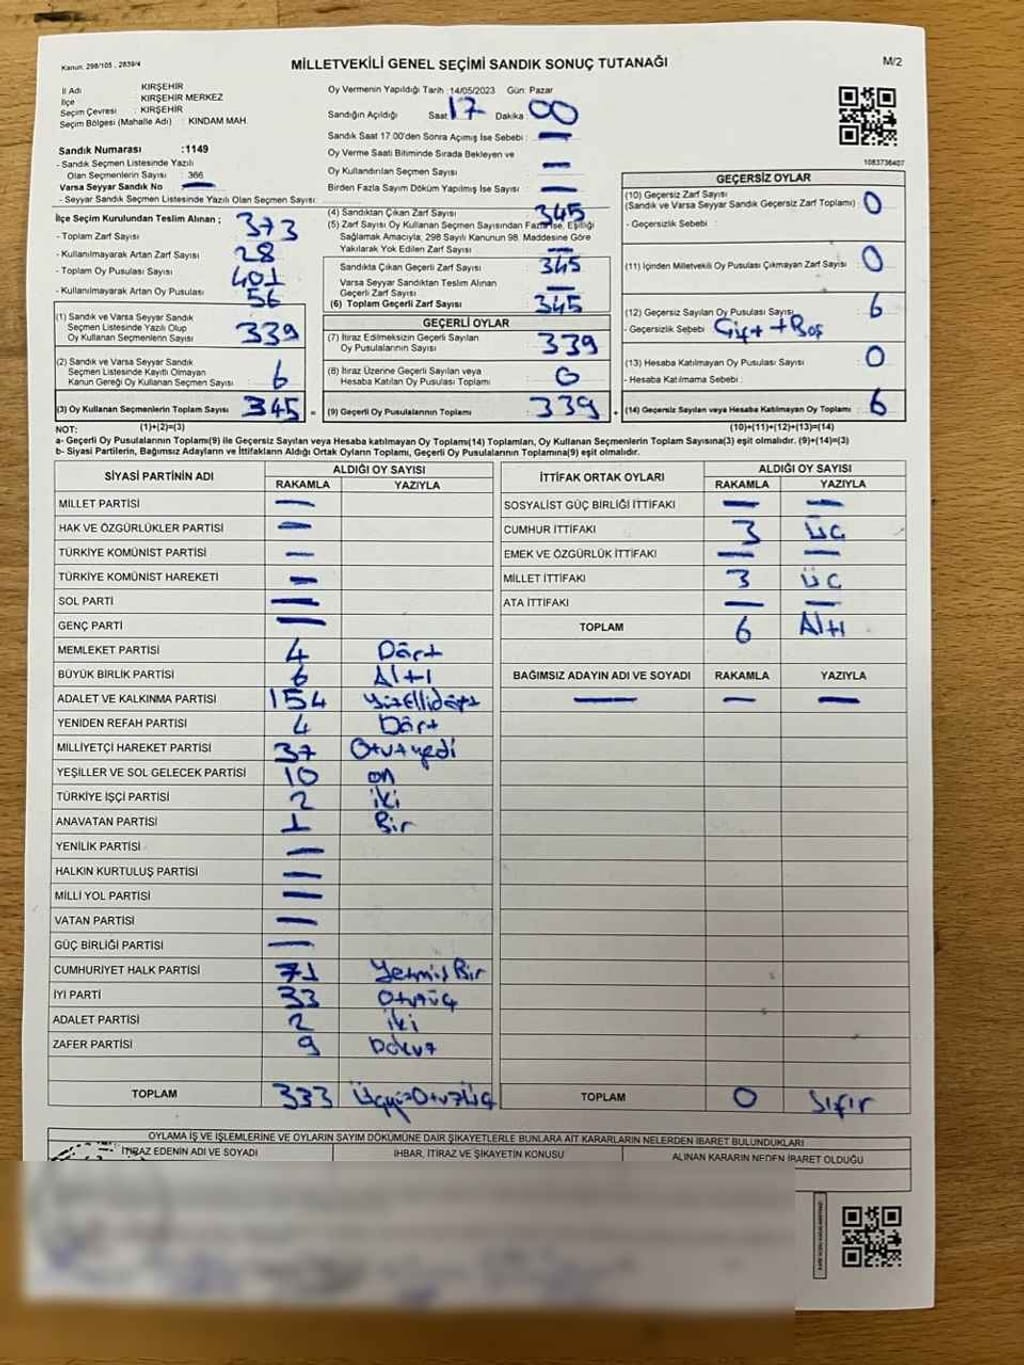 Kanun: 298/105 , 2839/4
MİLLETVEKİLİ GENEL SEÇİMİ SANDIK SONUÇ TUTANAĞI
M/2
İl Adı : KIRŞEHİR
İlçe : KIRŞEHİR MERKEZ
Seçim Çevresi : KIRŞEHİR
Seçim Bölgesi (Mahalle Adı) : KINDAM MAH.
Sandık Numarası :1149
- Sandık Seçmen Listesinde Yazılı
Olan Seçmenlerin Sayısı : 366
Varsa Seyyar Sandık No —
- Seyyar Sandık Seçmen Listesinde Yazılı Olan Seçmen Sayısı:
Oy Vermenin Yapıldığı Tarih :14/05/2023 Gün: Pazar
Sandığın Açıldığı Saat: 17 Dakika : 00
Sandık Saat 17.00'den Sonra Açılmış İse Sebebi : —
Oy Verme Saati Bitiminde Sırada Bekleyen ve
Oy Kullandırılan Seçmen Sayısı : —
Birden Fazla Sayım Döküm Yapılmış İse Sayısı : —
1083736407
İlçe Seçim Kurulundan Teslim Alınan ;
- Toplam Zarf Sayısı : 373
- Kullanılmayarak Artan Zarf Sayısı : 28
- Toplam Oy Pusulası Sayısı : 401
- Kullanılmayarak Artan Oy Pusulası : 56
(1) Sandık ve Varsa Seyyar Sandık
Seçmen Listesinde Yazılı Olup
Oy Kullanan Seçmenlerin Sayısı 339
(2) Sandık ve Varsa Seyyar Sandık
Seçmen Listesinde Kayıtlı Olmayan
Kanun Gereği Oy Kullanan Seçmen Sayısı 6
(3) Oy Kullanan Seçmenlerin Toplam Sayısı 345 =
(4) Sandıktan Çıkan Zarf Sayısı 345
(5) Zarf Sayısı Oy Kullanan Seçmen Sayısından Fazla İse, Eşitliği
Sağlamak Amacıyla, 298 Sayılı Kanunun 98. Maddesine Göre
Yakılarak Yok Edilen Zarf Sayısı —
Sandıkta Çıkan Geçerli Zarf Sayısı : 345
Varsa Seyyar Sandıktan Teslim Alınan
Geçerli Zarf Sayısı : —
(6) Toplam Geçerli Zarf Sayısı 345
GEÇERLİ OYLAR
(7) İtiraz Edilmeksizin Geçerli Sayılan
Oy Pusulalarının Sayısı 339
(8) İtiraz Üzerine Geçerli Sayılan veya
Hesaba Katılan Oy Pusulası Toplamı 0
(9) Geçerli Oy Pusulalarının Toplamı 339 +
GEÇERSİZ OYLAR
(10) Geçersiz Zarf Sayısı
(Sandık ve Varsa Seyyar Sandık Geçersiz Zarf Toplamı) : 0
- Geçersizlik Sebebi :
(11) İçinden Milletvekili Oy Pusulası Çıkmayan Zarf Sayısı : 0
(12) Geçersiz Sayılan Oy Pusulası Sayısı : 6
- Geçersizlik Sebebi : Çift + Boş
(13) Hesaba Katılmayan Oy Pusulası Sayısı : 0
- Hesaba Katılmama Sebebi :
(14) Geçersiz Sayılan veya Hesaba Katılmayan Oy Toplamı 6
NOT: (1)+(2)=(3) (10)+(11)+(12)+(13)=(14)
a- Geçerli Oy Pusulalarının Toplamı(9) ile Geçersiz Sayılan veya Hesaba katılmayan Oy Toplamı(14) Toplamları, Oy Kullanan Seçmenlerin Toplam Sayısına(3) eşit olmalıdır. (9)+(14)=(3)
b- Siyasi Partilerin, Bağımsız Adayların ve İttifakların Aldığı Ortak Oyların Toplamı, Geçerli Oy Pusulalarının Toplamına(9) eşit olmalıdır.
SİYASİ PARTİNİN ADI ALDIĞI OY SAYISI
RAKAMLA YAZIYLA
MİLLET PARTİSİ —
HAK VE ÖZGÜRLÜKLER PARTİSİ —
TÜRKİYE KOMÜNİST PARTİSİ —
TÜRKİYE KOMÜNİST HAREKETİ —
SOL PARTİ —
GENÇ PARTİ —
MEMLEKET PARTİSİ 4 Dört
BÜYÜK BİRLİK PARTİSİ 6 Altı
ADALET VE KALKINMA PARTİSİ 154 Yüzellidört
YENİDEN REFAH PARTİSİ 4 Dört
MİLLİYETÇİ HAREKET PARTİSİ 37 Otuzyedi
YEŞİLLER VE SOL GELECEK PARTİSİ 10 on
TÜRKİYE İŞÇİ PARTİSİ 2 iki
ANAVATAN PARTİSİ 1 Bir
YENİLİK PARTİSİ —
HALKIN KURTULUŞ PARTİSİ —
MİLLİ YOL PARTİSİ —
VATAN PARTİSİ —
GÜÇ BİRLİĞİ PARTİSİ —
CUMHURİYET HALK PARTİSİ 71 Yetmiş Bir
İYİ PARTİ 33 Otuzüç
ADALET PARTİSİ 2 iki
ZAFER PARTİSİ 9 Dokuz
TOPLAM 333 ÜçyüzOtuzÜç
İTTİFAK ORTAK OYLARI ALDIĞI OY SAYISI
RAKAMLA YAZIYLA
SOSYALİST GÜÇ BİRLİĞİ İTTİFAKI — —
CUMHUR İTTİFAKI 3 üç
EMEK VE ÖZGÜRLÜK İTTİFAKI — —
MİLLET İTTİFAKI 3 üç
ATA İTTİFAKI — —
TOPLAM 6 Altı
BAĞIMSIZ ADAYIN ADI VE SOYADI RAKAMLA YAZIYLA
— — —
TOPLAM 0 Sıfır
OYLAMA İŞ VE İŞLEMLERİNE VE OYLARIN SAYIM DÖKÜMÜNE DAİR ŞİKAYETLERLE BUNLARA AİT KARARLARIN NELERDEN İBARET BULUNDUKLARI
İTİRAZ EDENİN ADI VE SOYADI İHBAR, İTİRAZ VE ŞİKAYETİN KONUSU ALINAN KARARIN NEDEN İBARET OLDUĞU